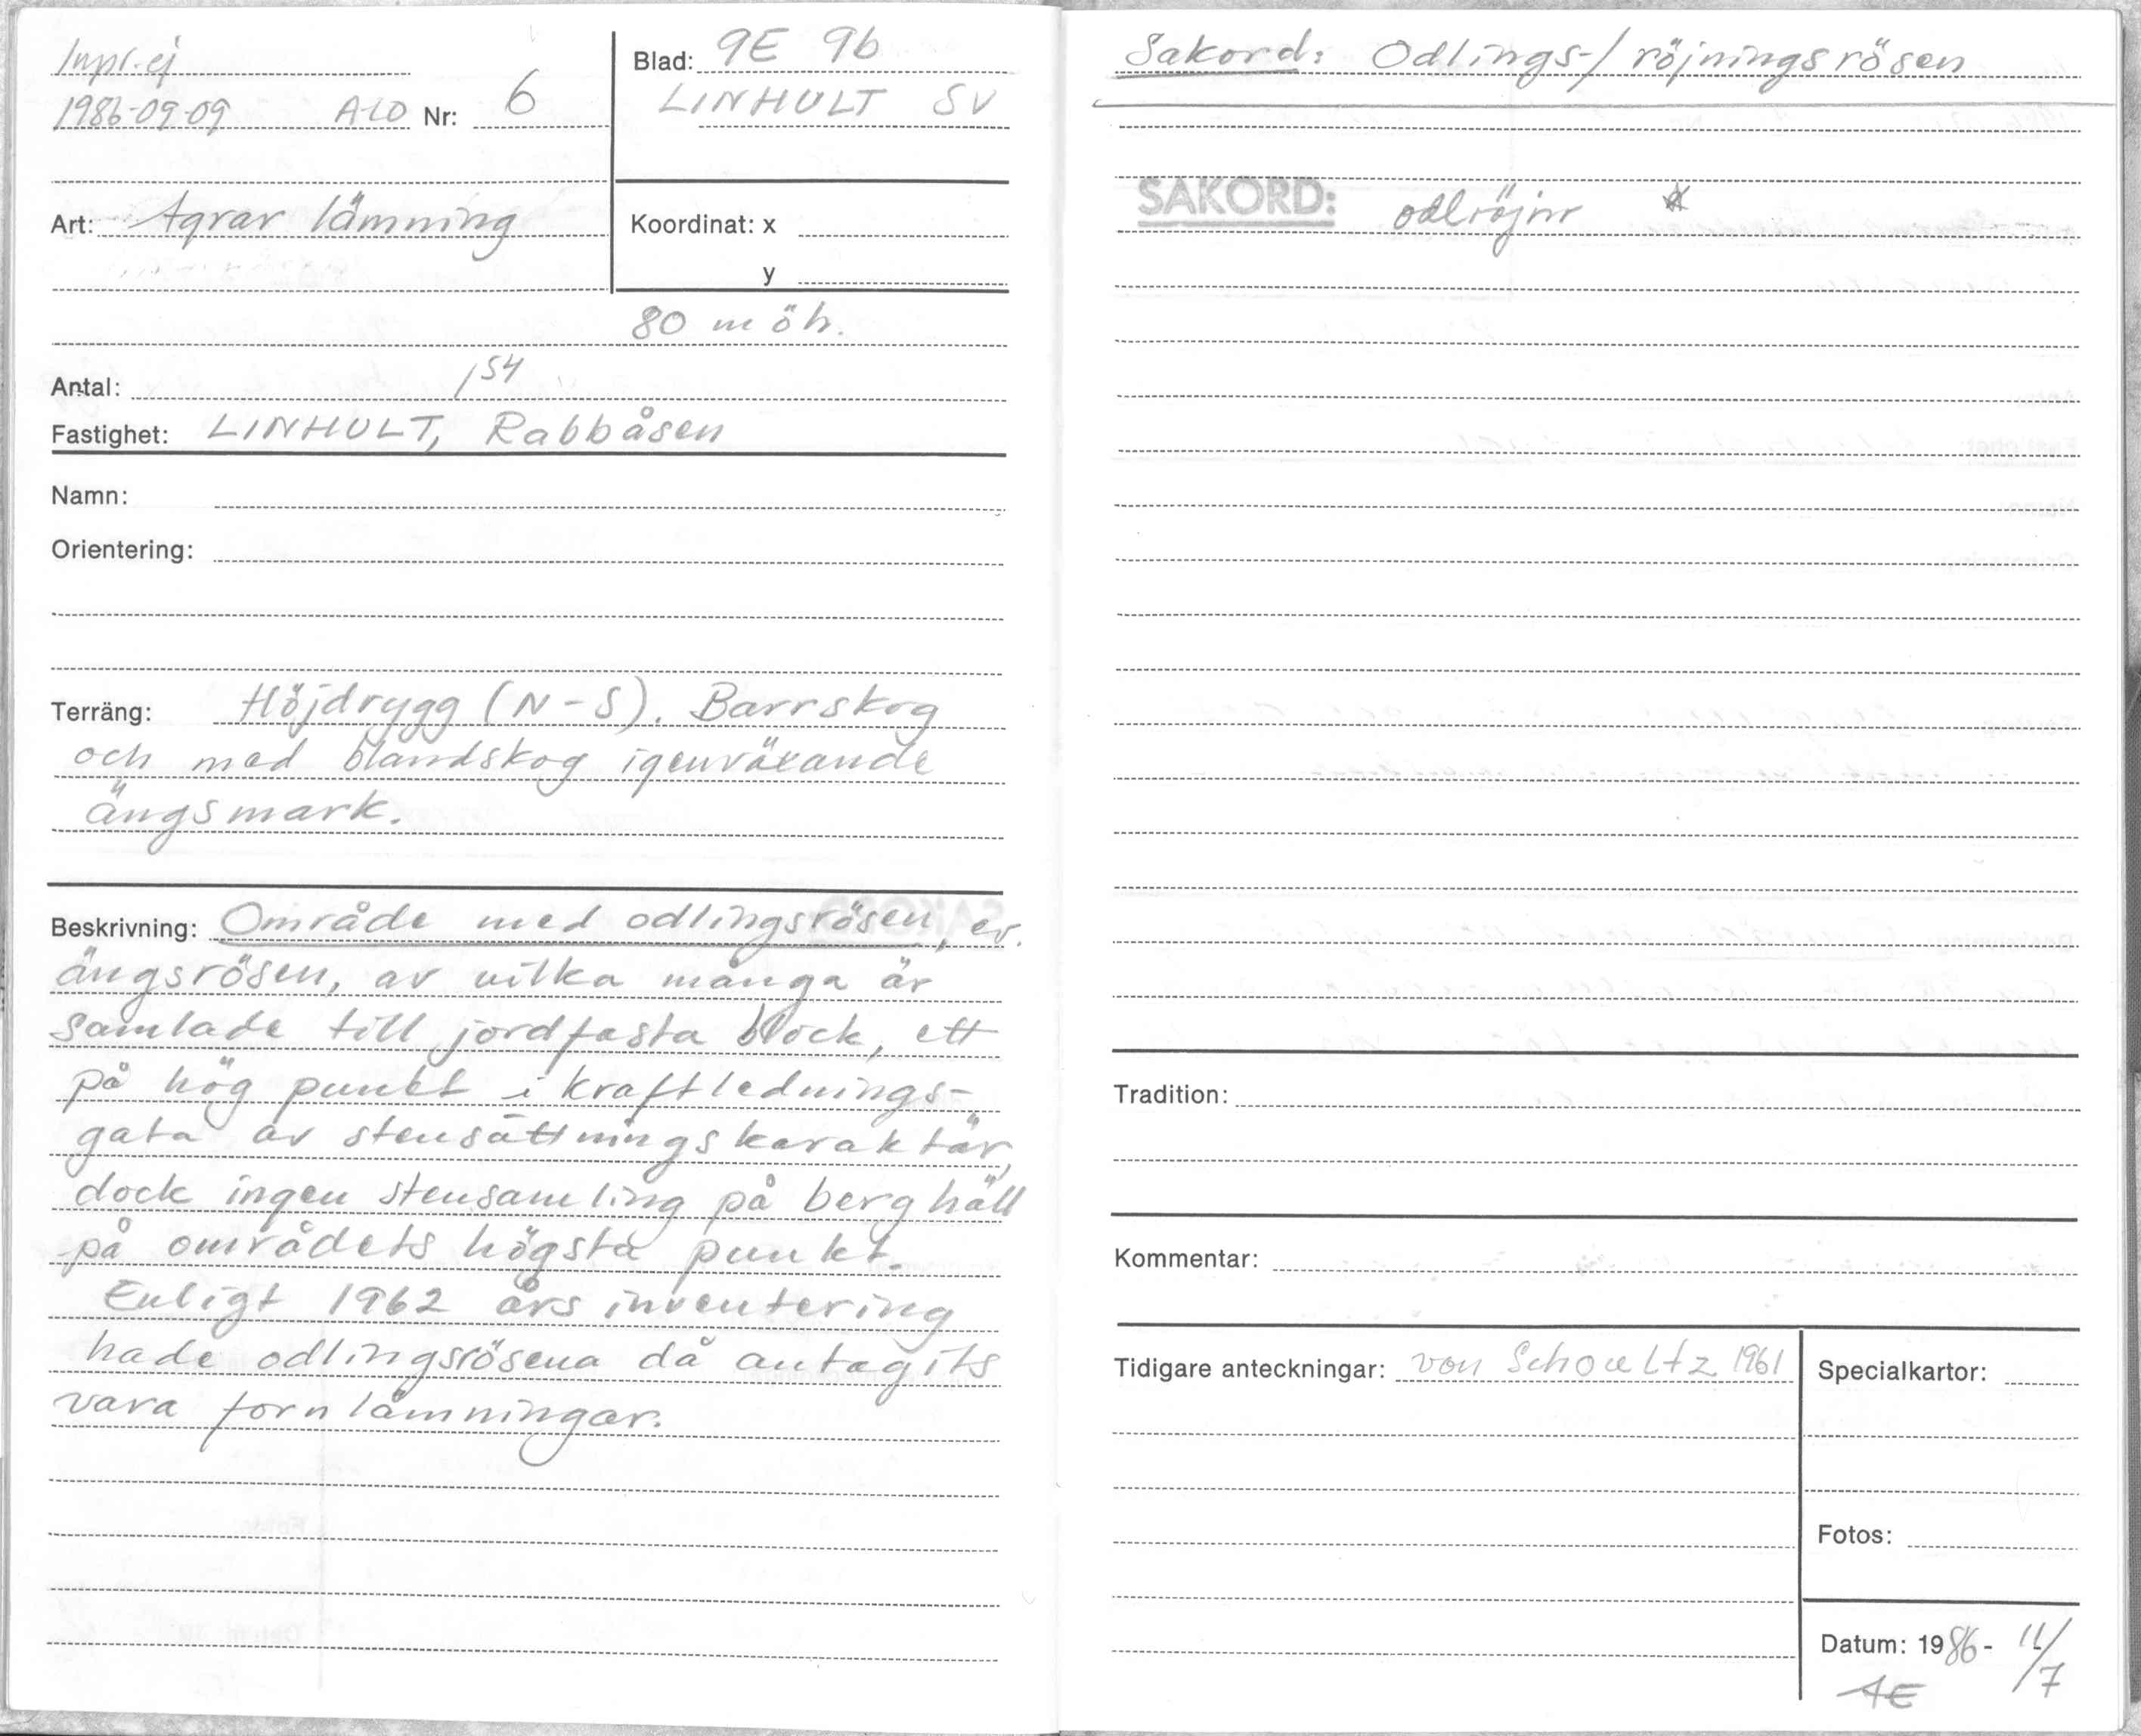 Inpr. ej
1986-09-09 ALD Nr: 6
Blad: 9E 9b
LINHULT SV
Art: Agrar lämning
Koordinat: x
y
80 m öh.
Antal: 154
Fastighet: LINHULT, Rabbåsen
Namn:
Orientering:
Terräng: Höjdrygg (N-S). Barrskog
och med blandskog igenväxande
ängsmark.
Beskrivning: Område med odlingsrösen, ev.
ängsrösen, av vilka många är
samlade till jordfasta block, ett
på hög punkt i kraftlednings-
gata av stensättningskaraktär,
dock ingen stensamling på berghäll
på områdets högsta punkt.
Enligt 1962 års inventering
hade odlingsrösena då antagits
vara fornlämningar.
Sakord: Odlings-/röjningsrösen
SAKORD: odlröjnr
Tradition:
Kommentar:
Tidigare anteckningar: von Schoultz 1961
Specialkartor:
Fotos:
Datum: 1986- 11/7
AE